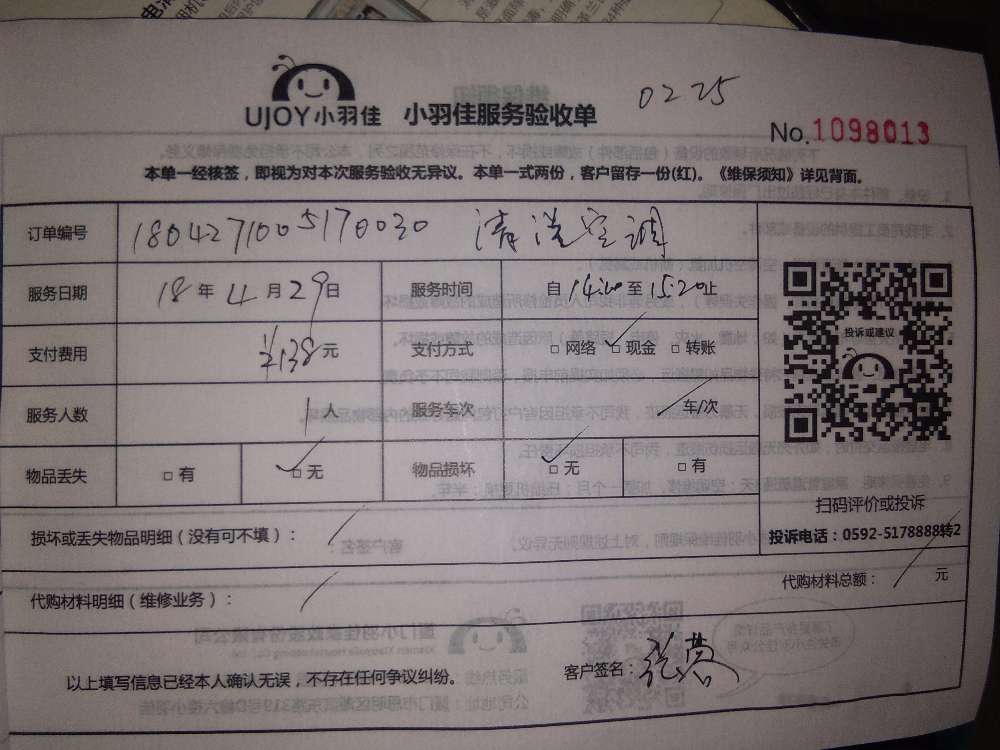 UJOY小羽佳 小羽佳服务验收单 0225
No.1098013
本单一经核签，即视为对本次服务验收无异议。本单一式两份，客户留存一份(红)。《维保须知》详见背面。
订单编号 1804271005170030 清洗空调
服务日期 18年4月29日 服务时间 自14:00至15:20止
支付费用 ¥138元 支付方式 □网络 ✓□现金 □转账
服务人数 1人 服务车次 / 车/次
物品丢失 □有 ✓□无 物品损坏 ✓□无 □有
投诉或建议
扫码评价或投诉
投诉电话：0592-5178888转2
损坏或丢失物品明细（没有可不填）： /
代购材料明细（维修业务）： / 代购材料总额： / 元
以上填写信息已经本人确认无误，不存在任何争议纠纷。 客户签名：